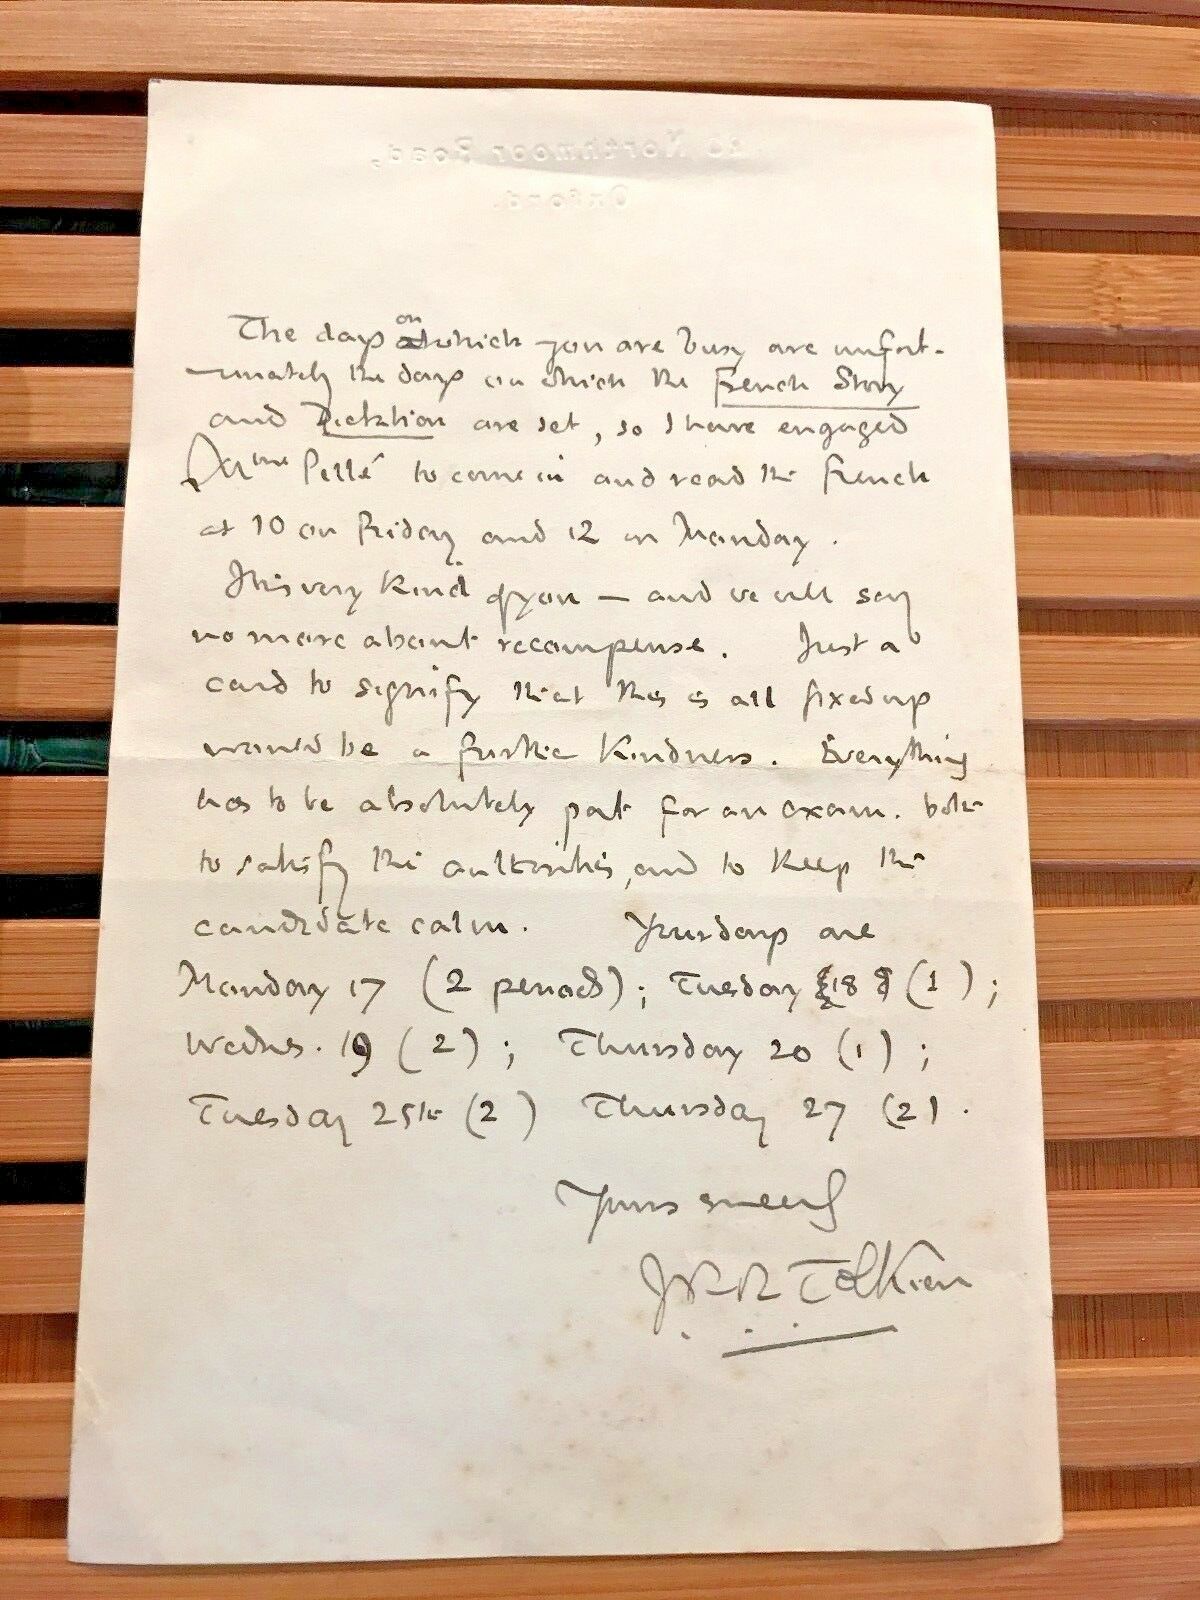 20 Northmoor Road,
Oxford.
The days on which you are busy are unfort-
unately the days on which the French Story
and Dictation are set, so I have engaged
Mme Pellé to come in and read the French
at 10 on Friday and 12 on Monday.
It is very kind of you — and we will say
no more about recompense. Just a
card to signify that this is all fixed up
would be a further kindness. Everything
has to be absolutely pat for an exam. both
to satisfy the authorities, and to keep the
candidate calm. Your days are
Monday 17 (2 periods); Tuesday 18 (1);
Wednes. 19 (2); Thursday 20 (1);
Tuesday 25th (2) Thursday 27 (2).
Yours sincerely
J.R.R. Tolkien